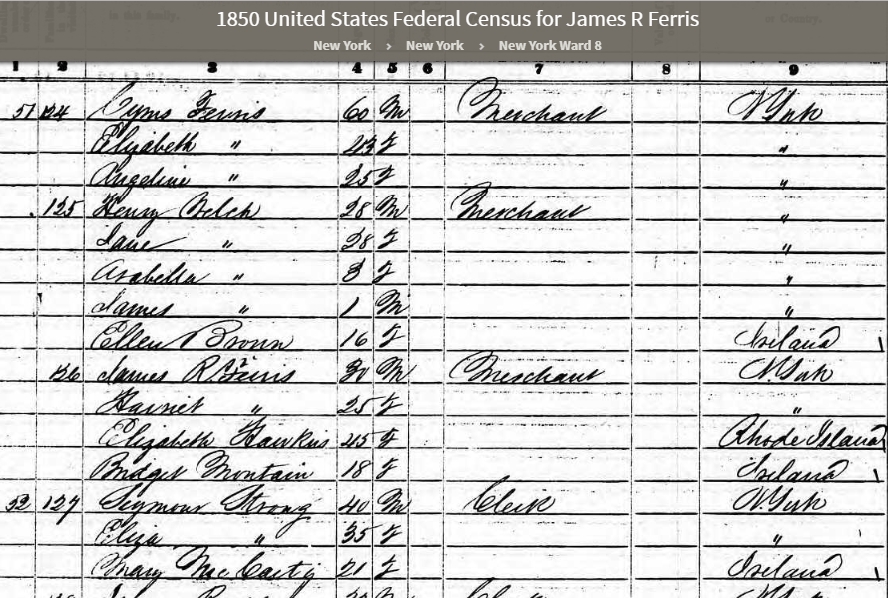 1850 United States Federal Census for James R Ferris
New York › New York › New York Ward 8
1 2 3 4 5 6 7 8 9
51 124 Cyrus Ferris 60 M Merchant N. York
Elizabeth " F "
Angeline " 25 F "
125 Henry Belch 28 M Merchant "
Jane " 28 F "
Arabella " 3 F "
James " 1 M "
Ellen Brown 16 F Ireland 1
126 James R. Ferris 30 M Merchant N. York
Harriet " 25 F "
Elizabeth Hawkins 45 F Rhode Island
Bridget Montain 18 F Ireland 1
52 127 Seymour Strong 40 M Clerk N. York
Eliza " 35 F "
Mary MacCartig 21 F Ireland 1